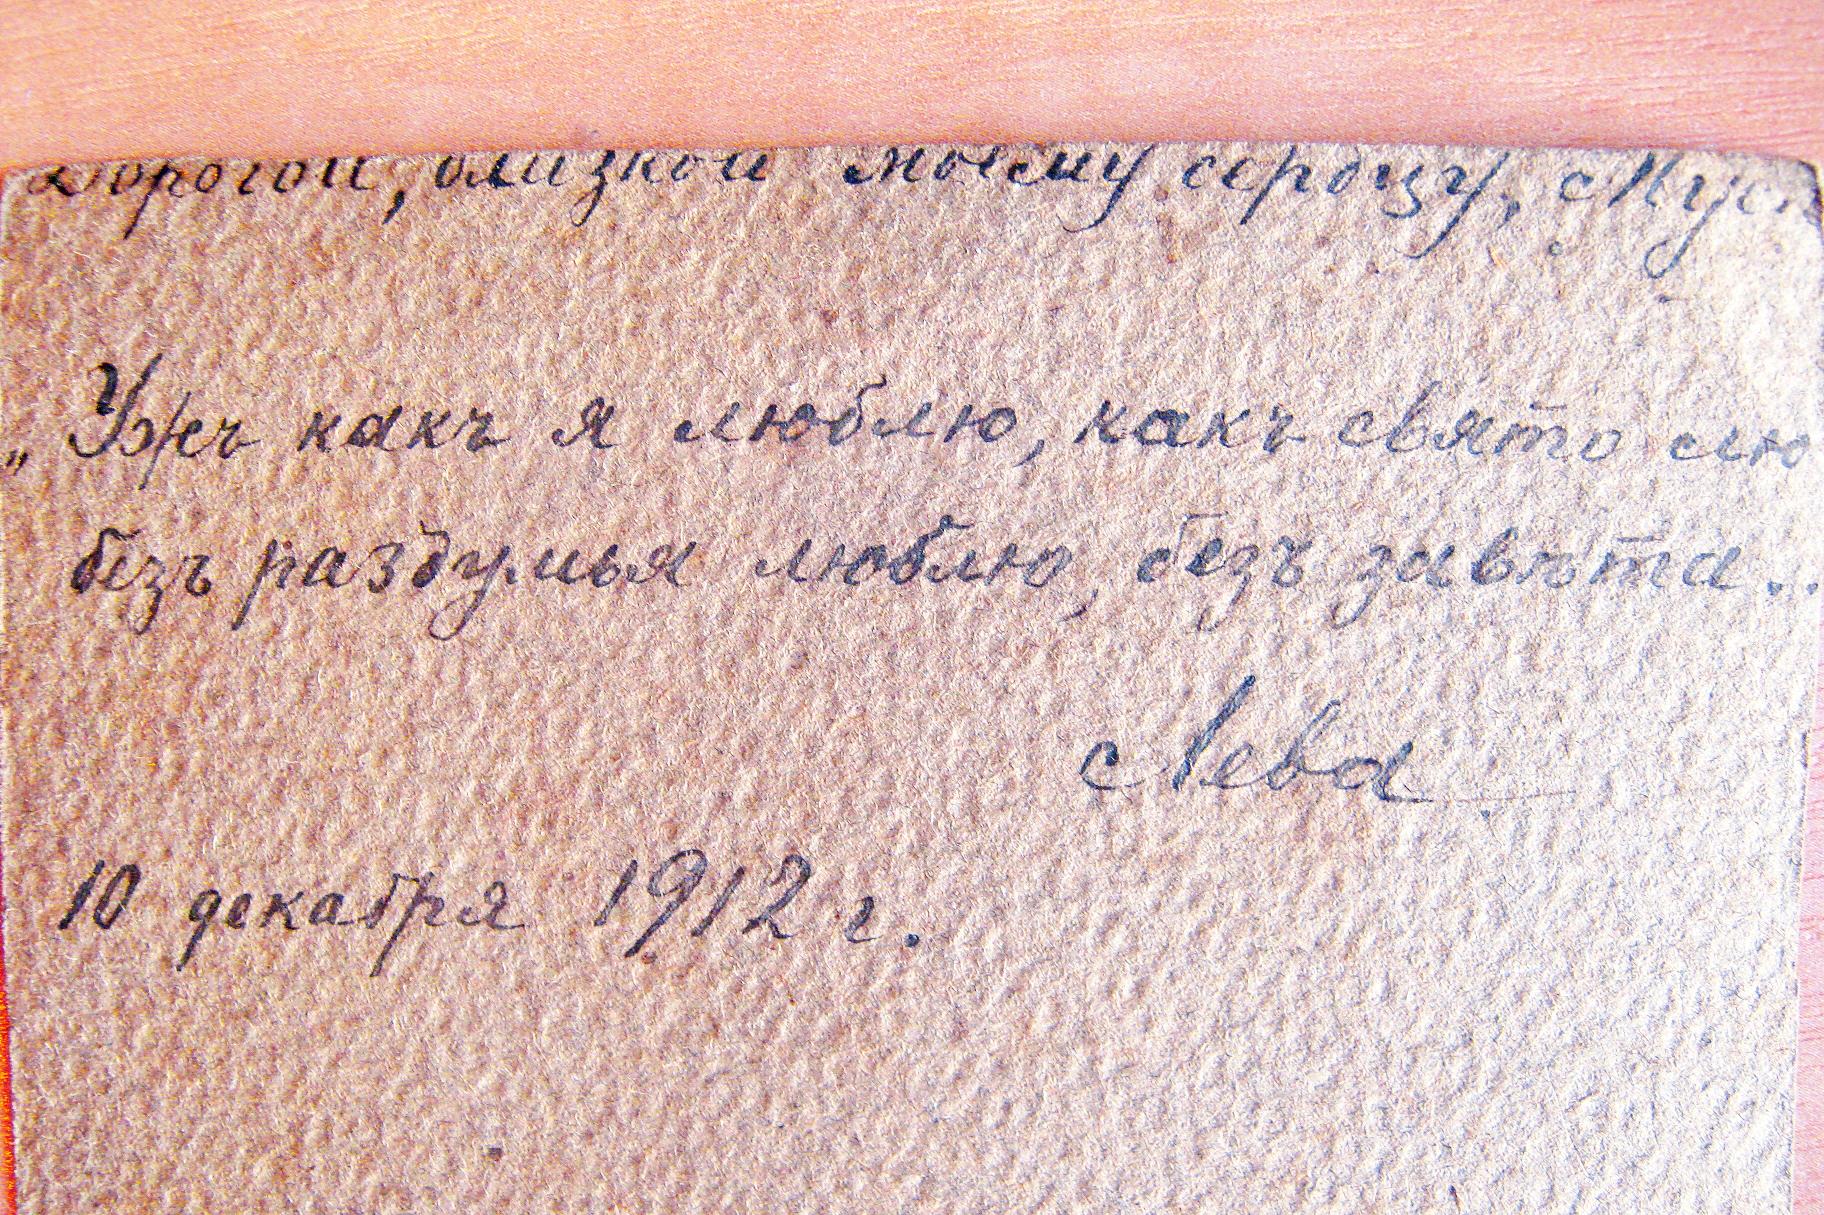 Дорогой, близкой моему сердцу, Мус
„Ужъ какъ я люблю, какъ свято лю
безъ раздумья люблю, безъ завѣта..
Лева
10 декабря 1912 г.